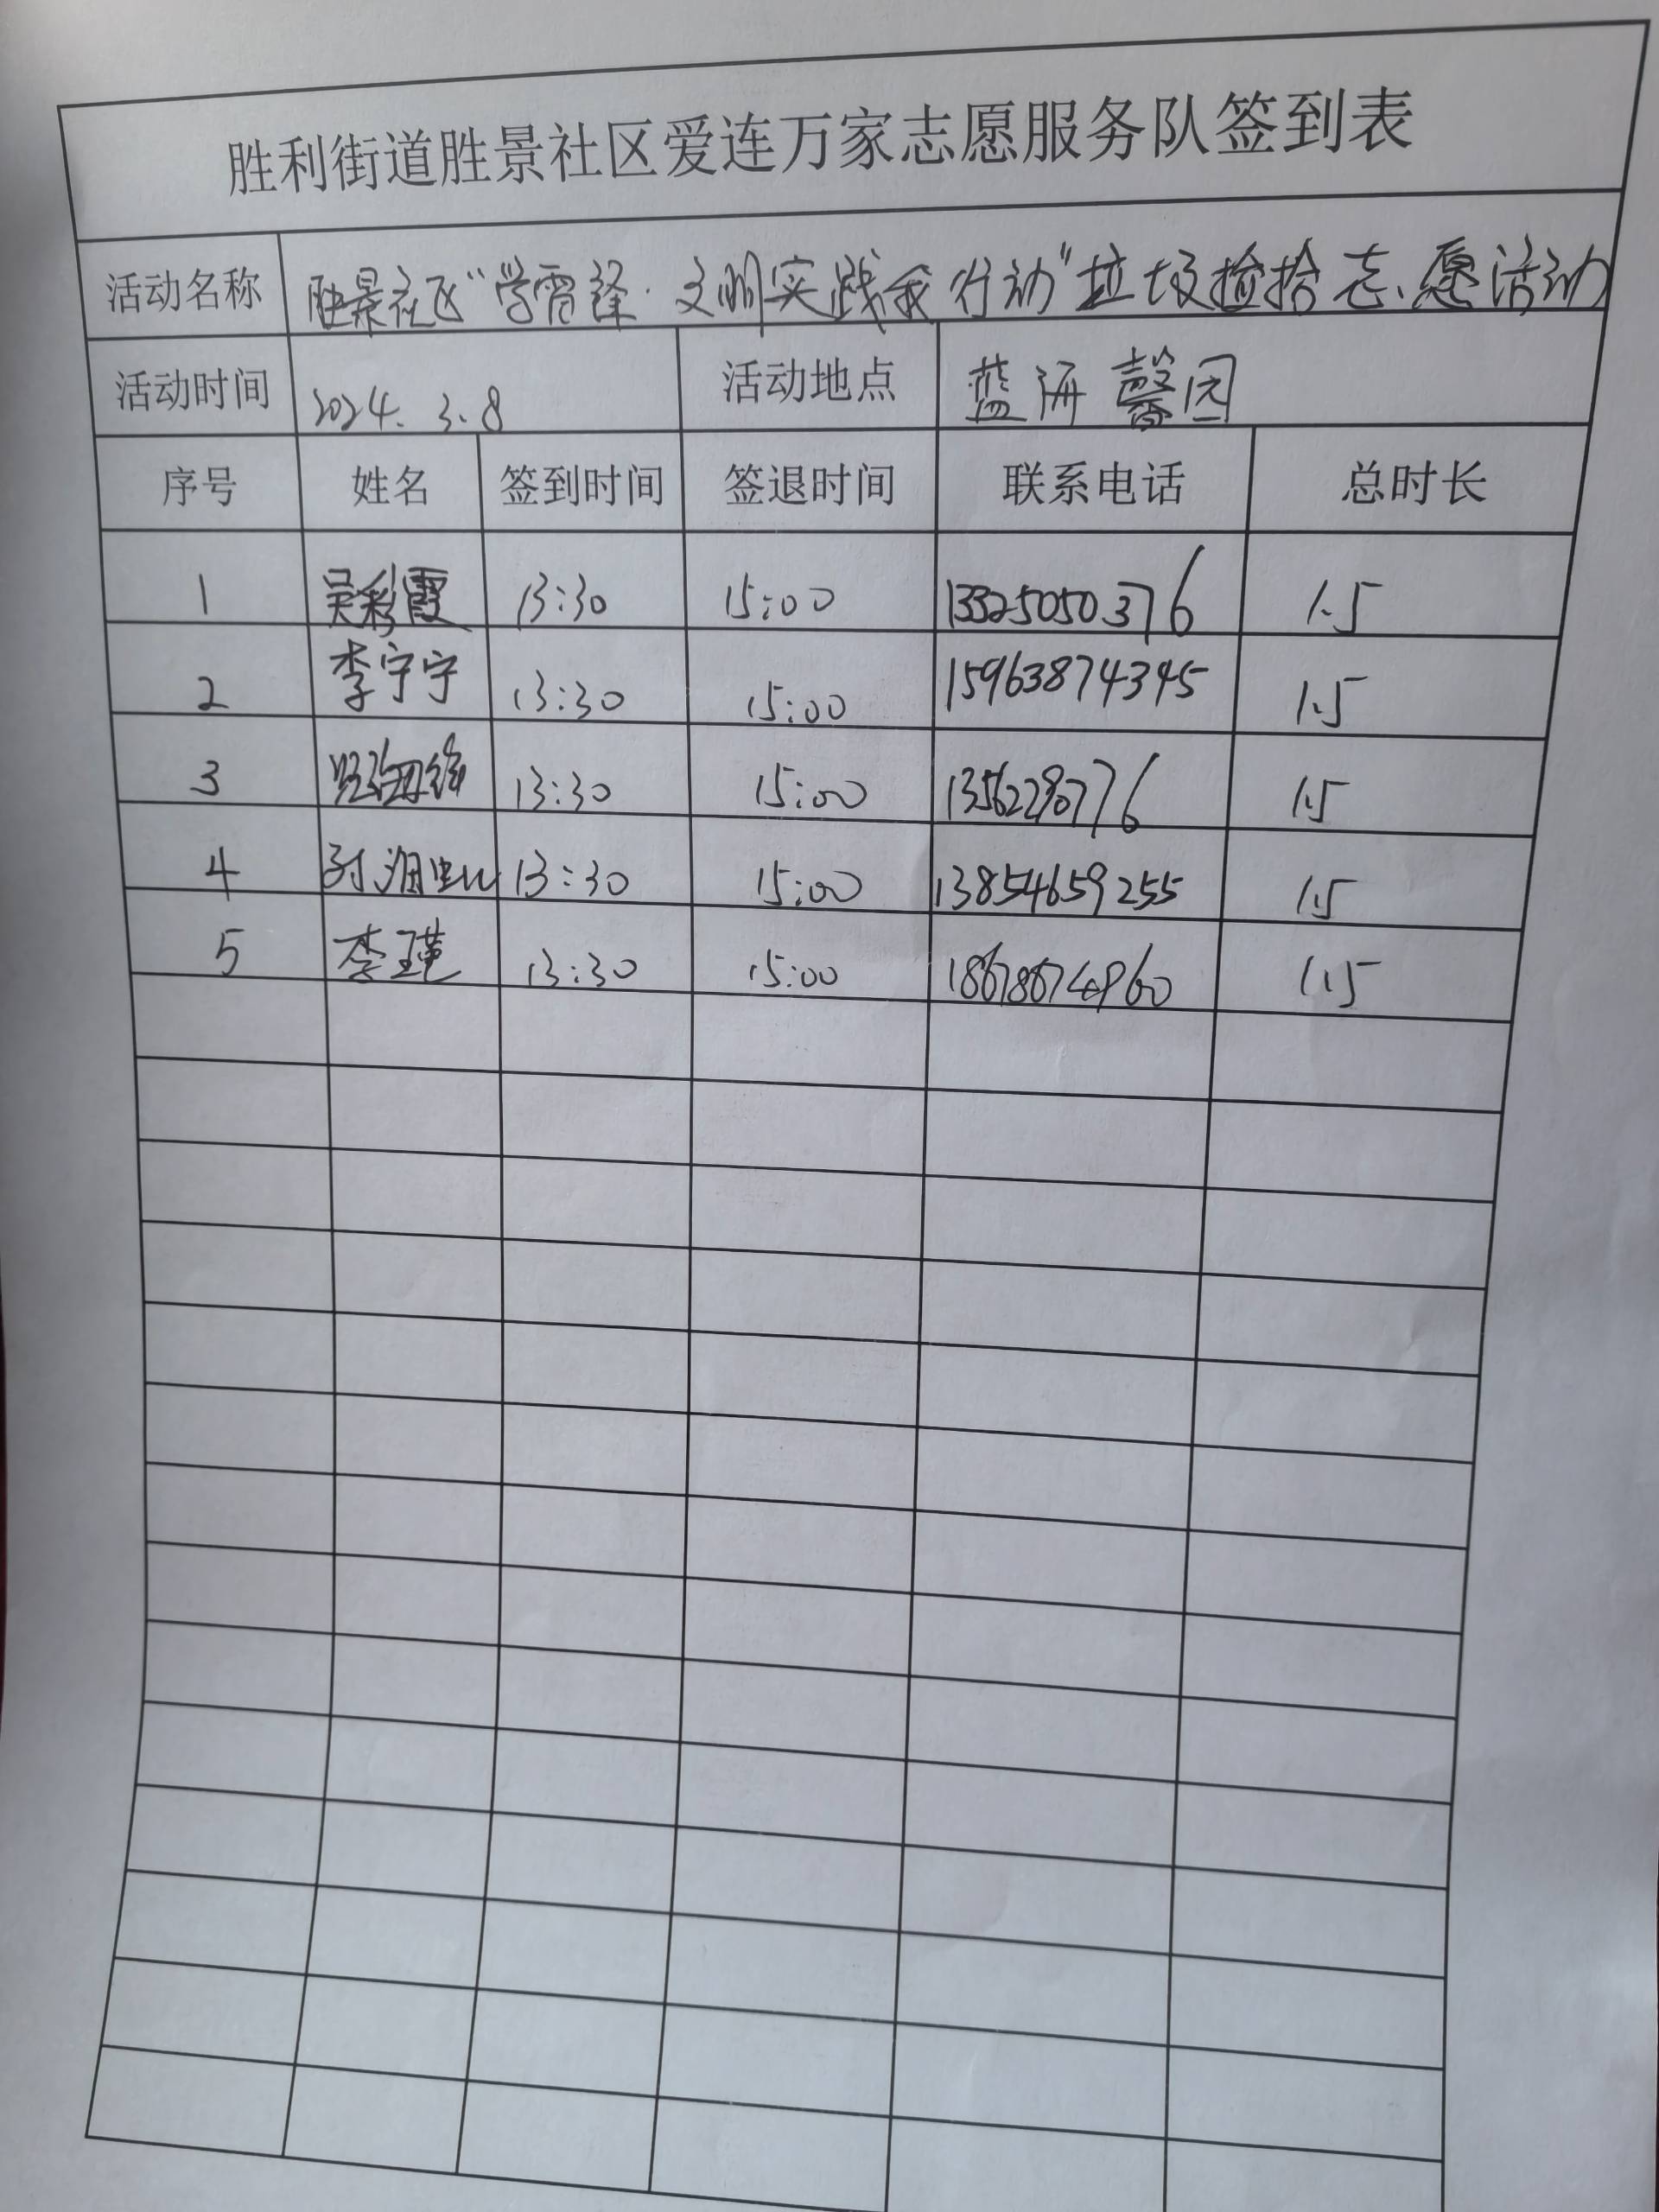 胜利街道胜景社区爱连万家志愿服务队签到表
活动名称 胜景社区“学雷锋·文明实践我行动”垃圾捡拾志愿活动
活动时间 2024.3.8 活动地点 蓝海馨园
序号 姓名 签到时间 签退时间 联系电话 总时长
1 吴彩霞 13:30 15:00 13325050376 1.5
2 李宁宁 13:30 15:00 15963874345 1.5
3 13:30 15:00 1.5
4 13:30 15:00 13854659255 1.5
5 李瑾 13:30 15:00 1.5